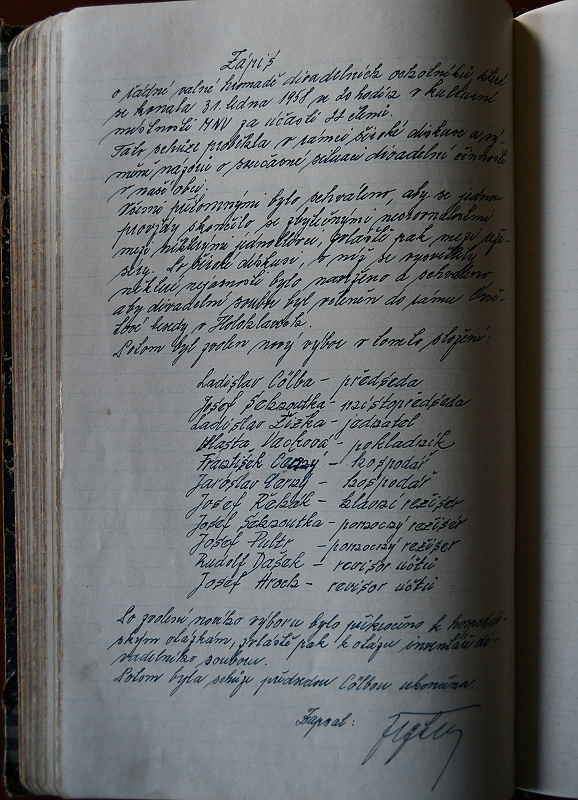 Zápis
o řádné valné hromadě divadelních ochotníků, která
se konala 31. ledna 1958 ve 20 hodin v kulturní
místnosti MNV za účasti 22 členů.
Tato schůze probíhala v rámci široké diskuse a vý-
měny názorů o současné situaci divadelní činnosti
v naší obci.
Všemi přítomnými bylo schváleno, aby se jednou
provždy skončilo se zbytečnými neshodami
mezi některými jednotlivci, zvláště pak mezi reži-
séry. Po široké diskusi, v níž se vysvětlily
některé nejasnosti bylo navrženo a schváleno
aby divadelní soubor byl vtělen do rámu Osvě-
tové besedy v Holohlavech.
Potom byl zvolen nový výbor v tomto složení:
Ladislav Cölba - předseda
Josef Skřoutka - místopředseda
Ladislav Žižka - jednatel
Vlasta Vacková - pokladník
František - hospodář
Jaroslav Černý - hospodář
Josef Řehák - hlavní režisér
Josef Skřoutka - pomocný režisér
Josef Pultr - pomocný režisér
Rudolf Dašek - revisor účtů
Josef Hroch - revisor účtů
Po zvolení nového výboru bylo přikročeno k hospodář-
ským otázkám, zvláště pak k otázce inventáře di-
vadelního souboru.
Potom byla schůze předsedou Cölbou ukončena.
Zapsal: